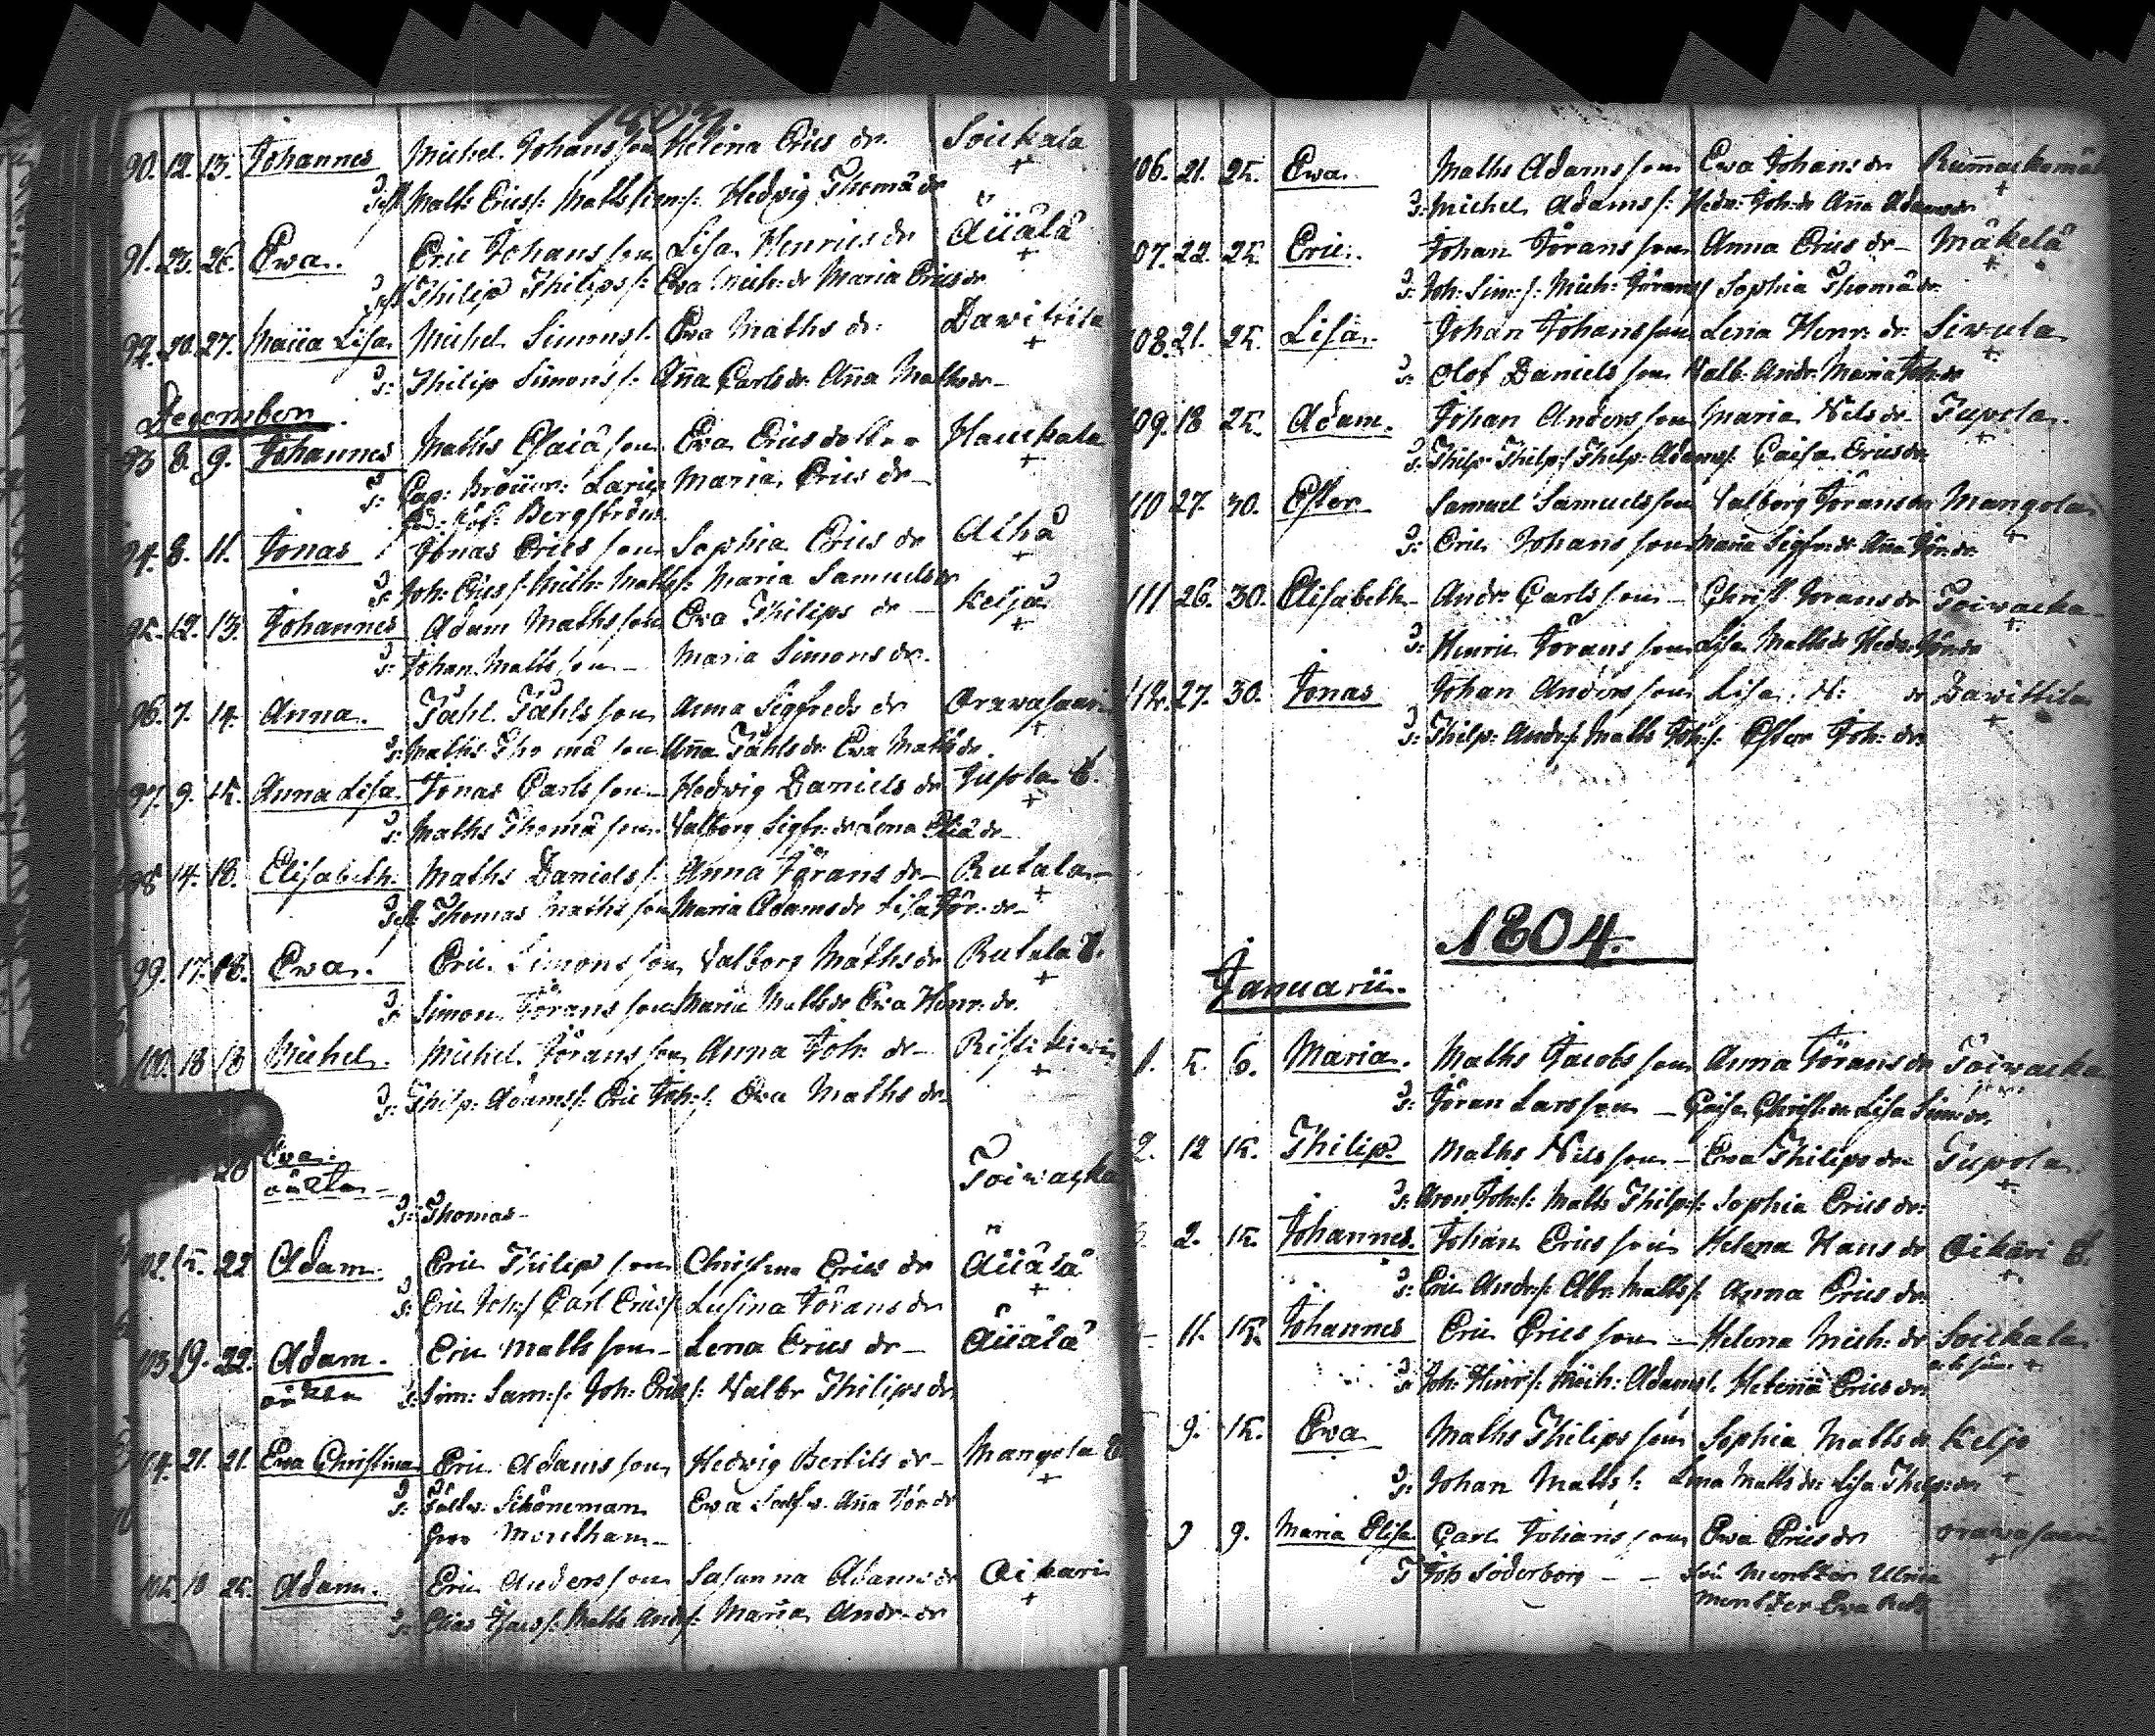 1803
90. 12. 13. Johannes Michel Johansson Helena Erics dr. Soickala +
Maths Ericss: Maths Hedwig Thomä dr
91. 23. 26. Ewa. Eric Johansson Lisa Henrics dr Äijälä +
Philip Philipss: Ewa Mich: dr Maria Erics dr
92. 20. 27. Maija Lisa Michel Simonss. Ewa Maths dr: Dawitila +
T: Philip Simonss: Anna Carls dr Anna Maths dr
December.
93 8. 9. Johannes Maths Esaiä son Ewa Erics dotter Hauckala +
T: Maria Erics dr
Bergström
94. 8. 11. Jonas Jonas Ericsson Sophia Erics dr Alhä +
T: Joh: Ericss: Mich: Mathss: Maria Samuels dr
95. 12. 13. Johannes Adam Mathsson Ewa Philips dr Keljä +
T: Johan Mathsson Maria Simons dr.
96. 7. 14. Anna. Påhl Påhlsson Anna Sigfreds dr Orawasaari +
T: Maths Thomä son Anna Påhls dr Ewa Maths dr.
97. 9. 15. Anna Lisa. Jonas Carlsson Hedwig Daniels dr Tupola +
T: Maths Thomä son Valborg Sigfr: dr Lena Eliä dr
98 14. 18. Elisabeth. Maths Danielss: Anna Jörans dr Rutala +
Thomas Mathsson Maria Adams dr Lisa Jör: dr
99. 17. 18. Ewa. Eric Simonsson Valborg Maths dr Rutala +
T: Simon Jöransson Maria Maths dr Ewa Henr: dr.
100. 18 18 Michel. Michel Jöransson Anna Joh: dr +
T: Philp: Adamss: Eric Joh:s: Ewa Maths dr.
20 Ewa. Toiwacka
oäkta
T: Thomas
102. 15. 22 Adam. Eric Philipsson Christina Erics dr Äijälä +
T: Eric Joh:s: Carl Ericss: Lusina Jörans dr
103 19. 22. Adam. Eric Mathsson Lena Erics dr Äijälä
oäkta T: Sim: Sam:s: Joh: Ericss: Valbr Philips dr
104. 21. 21. Ewa Christina Eric Adamsson Hedwig Bertils dr Mangola +
T: Fältw: Schöneman Ewa Anna Jör: dr
105. 18 25. Adam. Eric Andersson Susanna Adams dr Oikari +
T: Elias Maths Ands: Maria Andr: dr
106. 21. 25. Ewa. Maths Adamsson Ewa Johans dr +
T: Michel Adamss: Hedw: Joh: dr Anna Adams dr
107. 22. 25. Eric. Johan Jöransson Anna Erics dr Mäkelä +
T: Joh: Sim:s: Mich: Jöranss Sophia Thomä dr
108. 21. 25. Lisa. Johan Johansson Lena Henr: dr. Siwula +
T: Olof Danielsson Walb: Andr: Maria Joh: dr
109. 18 25. Adam. Johan Andersson Maria Nils dr Tupola. +
T: Philp: Philp:s Philp: Adamss: Caisa Erics dr.
110 27. 30. Ester Samuel Samuelsson Valborg Jörans dr Mangola +
T: Eric Johansson Maria Sigfr: dr Anna Jör: dr
111 26. 30. Elisabeth Andr: Carlsson Christ Jörans dr Toiwacka +
T: Henric Jöransson Lisa Maths dr Hedw: Jör: dr
112. 27. 30. Jonas Johan Andersson Lisa M: dr Dawittila +
T: Philp: Andr:s: Maths Joh:s: Ester Joh: dr
1804.
Januarii.
1. 5. 6. Maria. Maths Jacobsson Anna Jörans dr Toiwacka
T: Jöran Larsson Caisa Christ: dr Lisa Sim: dr.
2. 12 15. Philip. Maths Nilsson Ewa Philips dr Tupola. +
T: Aron Joh:s: Maths Philp:s: Sophia Erics dr:
2. 15. Johannes. Johan Ericsson Helena Hans dr Oikari +
T: Eric Andr:s: Abr: Mathss: Anna Erics dr:
11. 15. Johannes Eric Ericsson Helena Mich: dr Soickala +
T: Joh: Hinr:s: Mich: Adamss: Helena Erics dr:
9. 15. Ewa Maths Philipsson Sophia Maths dr Keljo
T: Johan Mathss: Lena Maths dr: Lisa Philp: dr
9. Maria Elisa. Carl Johansson Ewa Erics dr Orawasaari +
T Joh Söderborg Ulrica
Ewa